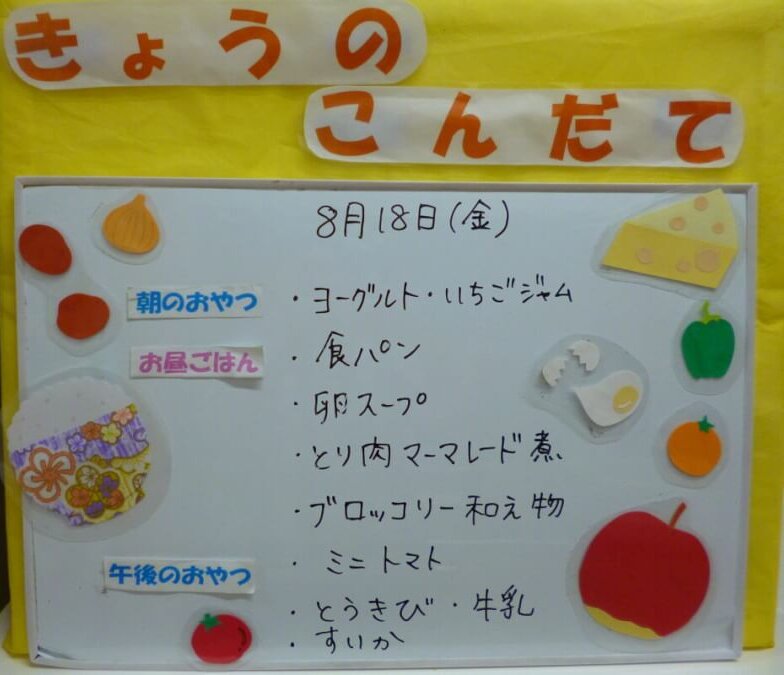 きょうの
こんだて
8月18日(金)
朝のおやつ ・ヨーグルト・いちごジャム
お昼ごはん ・食パン
・卵スープ
・とり肉マーマレード煮
・ブロッコリー和え物
・ミニトマト
午後のおやつ
・とうきび・牛乳
・すいか